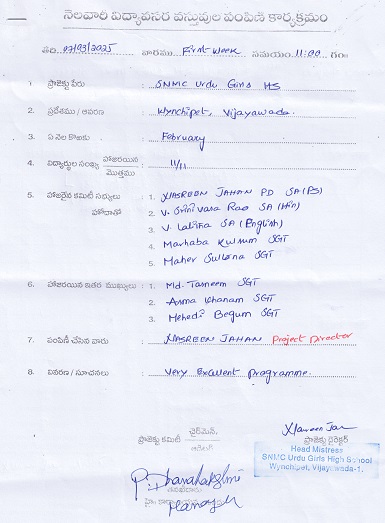 నెలవారీ విద్యావసర వస్తువుల పంపిణీ కార్యక్రమం
తేది 07/03/2025 వారము First Week సమయం 11:00 గం.
1. ప్రాజెక్టు పేరు : SNMC Urdu Girls HS
2. ప్రదేశము / ఆవరణ : Wynchipet, Vijayawada.
3. ఏ నెల కొరకు : February
4. విద్యార్థుల సంఖ్య హాజరయిన / మొత్తము : 11/11
5. హాజరైన కమిటీ సభ్యులు : 1. NASREEN JAHAN PD SA(PS)
హోదాతో 2. V. Srinivasa Rao SA (Hin)
3. V. Lalitha SA (English)
4. Marhaba Kulsum SGT
5. Maher Sultana SGT
6. హాజరయిన ఇతర ముఖ్యులు : 1. Md. Tasneem SGT
2. Asma Khanam SGT
3. Mehedi Begum SGT
7. పంపిణీ చేసిన వారు : NASREEN JAHAN Project Director
8. వివరణ / సూచనలు : Very Excellent programme.
ప్రాజెక్టు కమిటీ ఛైర్మెన్
ప్రాజెక్టు డైరెక్టర్
Head Mistress
SNMC Urdu Girls High School
Wynchipet, Vijayawada-1.